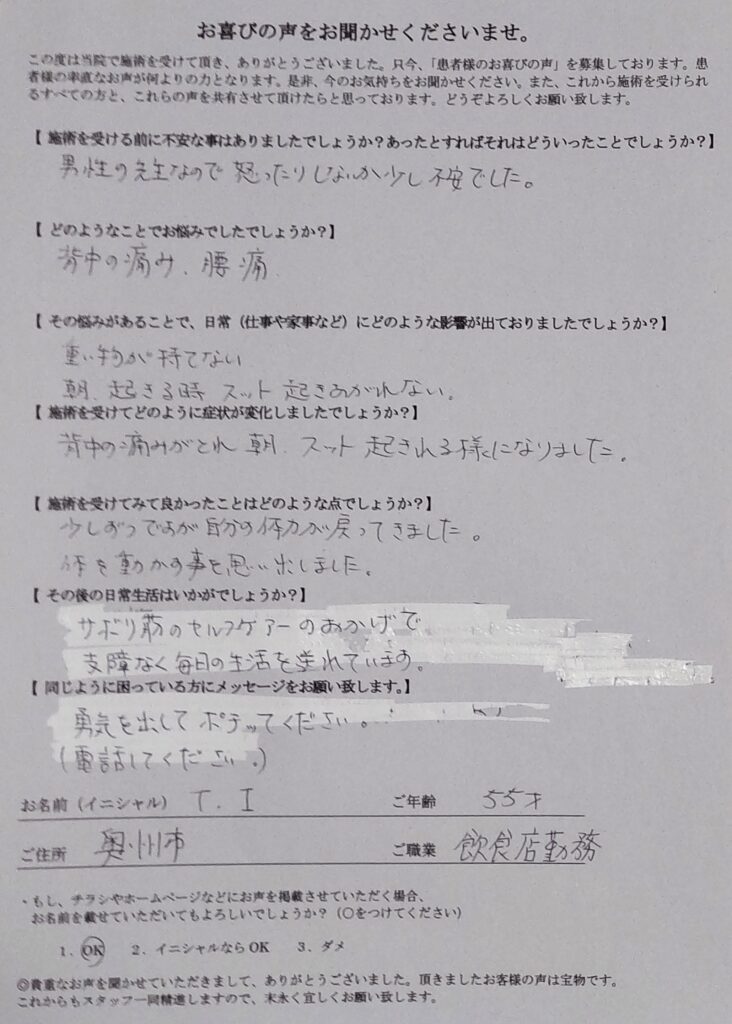 お喜びの声をお聞かせくださいませ。
この度は当院で施術を受けて頂き、ありがとうございました。只今、「患者様のお喜びの声」を募集しております。患
者様の率直なお声が何よりの力となります。是非、今のお気持ちをお聞かせください。また、これから施術を受けられ
るすべての方と、これらの声を共有させて頂けたらと思っております。どうぞよろしくお願い致します。
【 施術を受ける前に不安な事はありましたでしょうか？あったとすればそれはどういったことでしょうか？】
男性の先生なので 怒ったりしないか少し不安でした。
【 どのようなことでお悩みでしたでしょうか？】
背中の痛み、腰痛
【 その悩みがあることで、日常（仕事や家事など）にどのような影響が出ておりましたでしょうか？】
重い物が持てない
朝、起きる時 スット 起きあがれない。
【 施術を受けてどのように症状が変化しましたでしょうか？】
背中の痛みがとれ 朝、スット 起きれる様になりました。
【 施術を受けてみて良かったことはどのような点でしょうか？】
少しずつですが自分の体力が戻ってきました。
体を動かす事を思い出しました。
【 その後の日常生活はいかがでしょうか？】
サボリ筋のセルフケアーのおかげで
支障なく毎日の生活を送れています。
【 同じように困っている方にメッセージをお願い致します。】
勇気を出して ポチッてください。
(電話してください。)
お名前（イニシャル） T. I ご年齢 55才
ご住所 奥州市 ご職業 飲食店勤務
・もし、チラシやホームページなどにお声を掲載させていただく場合、
お名前を載せていただいてもよろしいでしょうか？（○をつけてください）
1. OK 2. イニシャルなら OK 3. ダメ
◎貴重なお声を聞かせていただきまして、ありがとうございました。頂きましたお客様の声は宝物です。
これからもスタッフ一同精進しますので、末永く宜しくお願い致します。